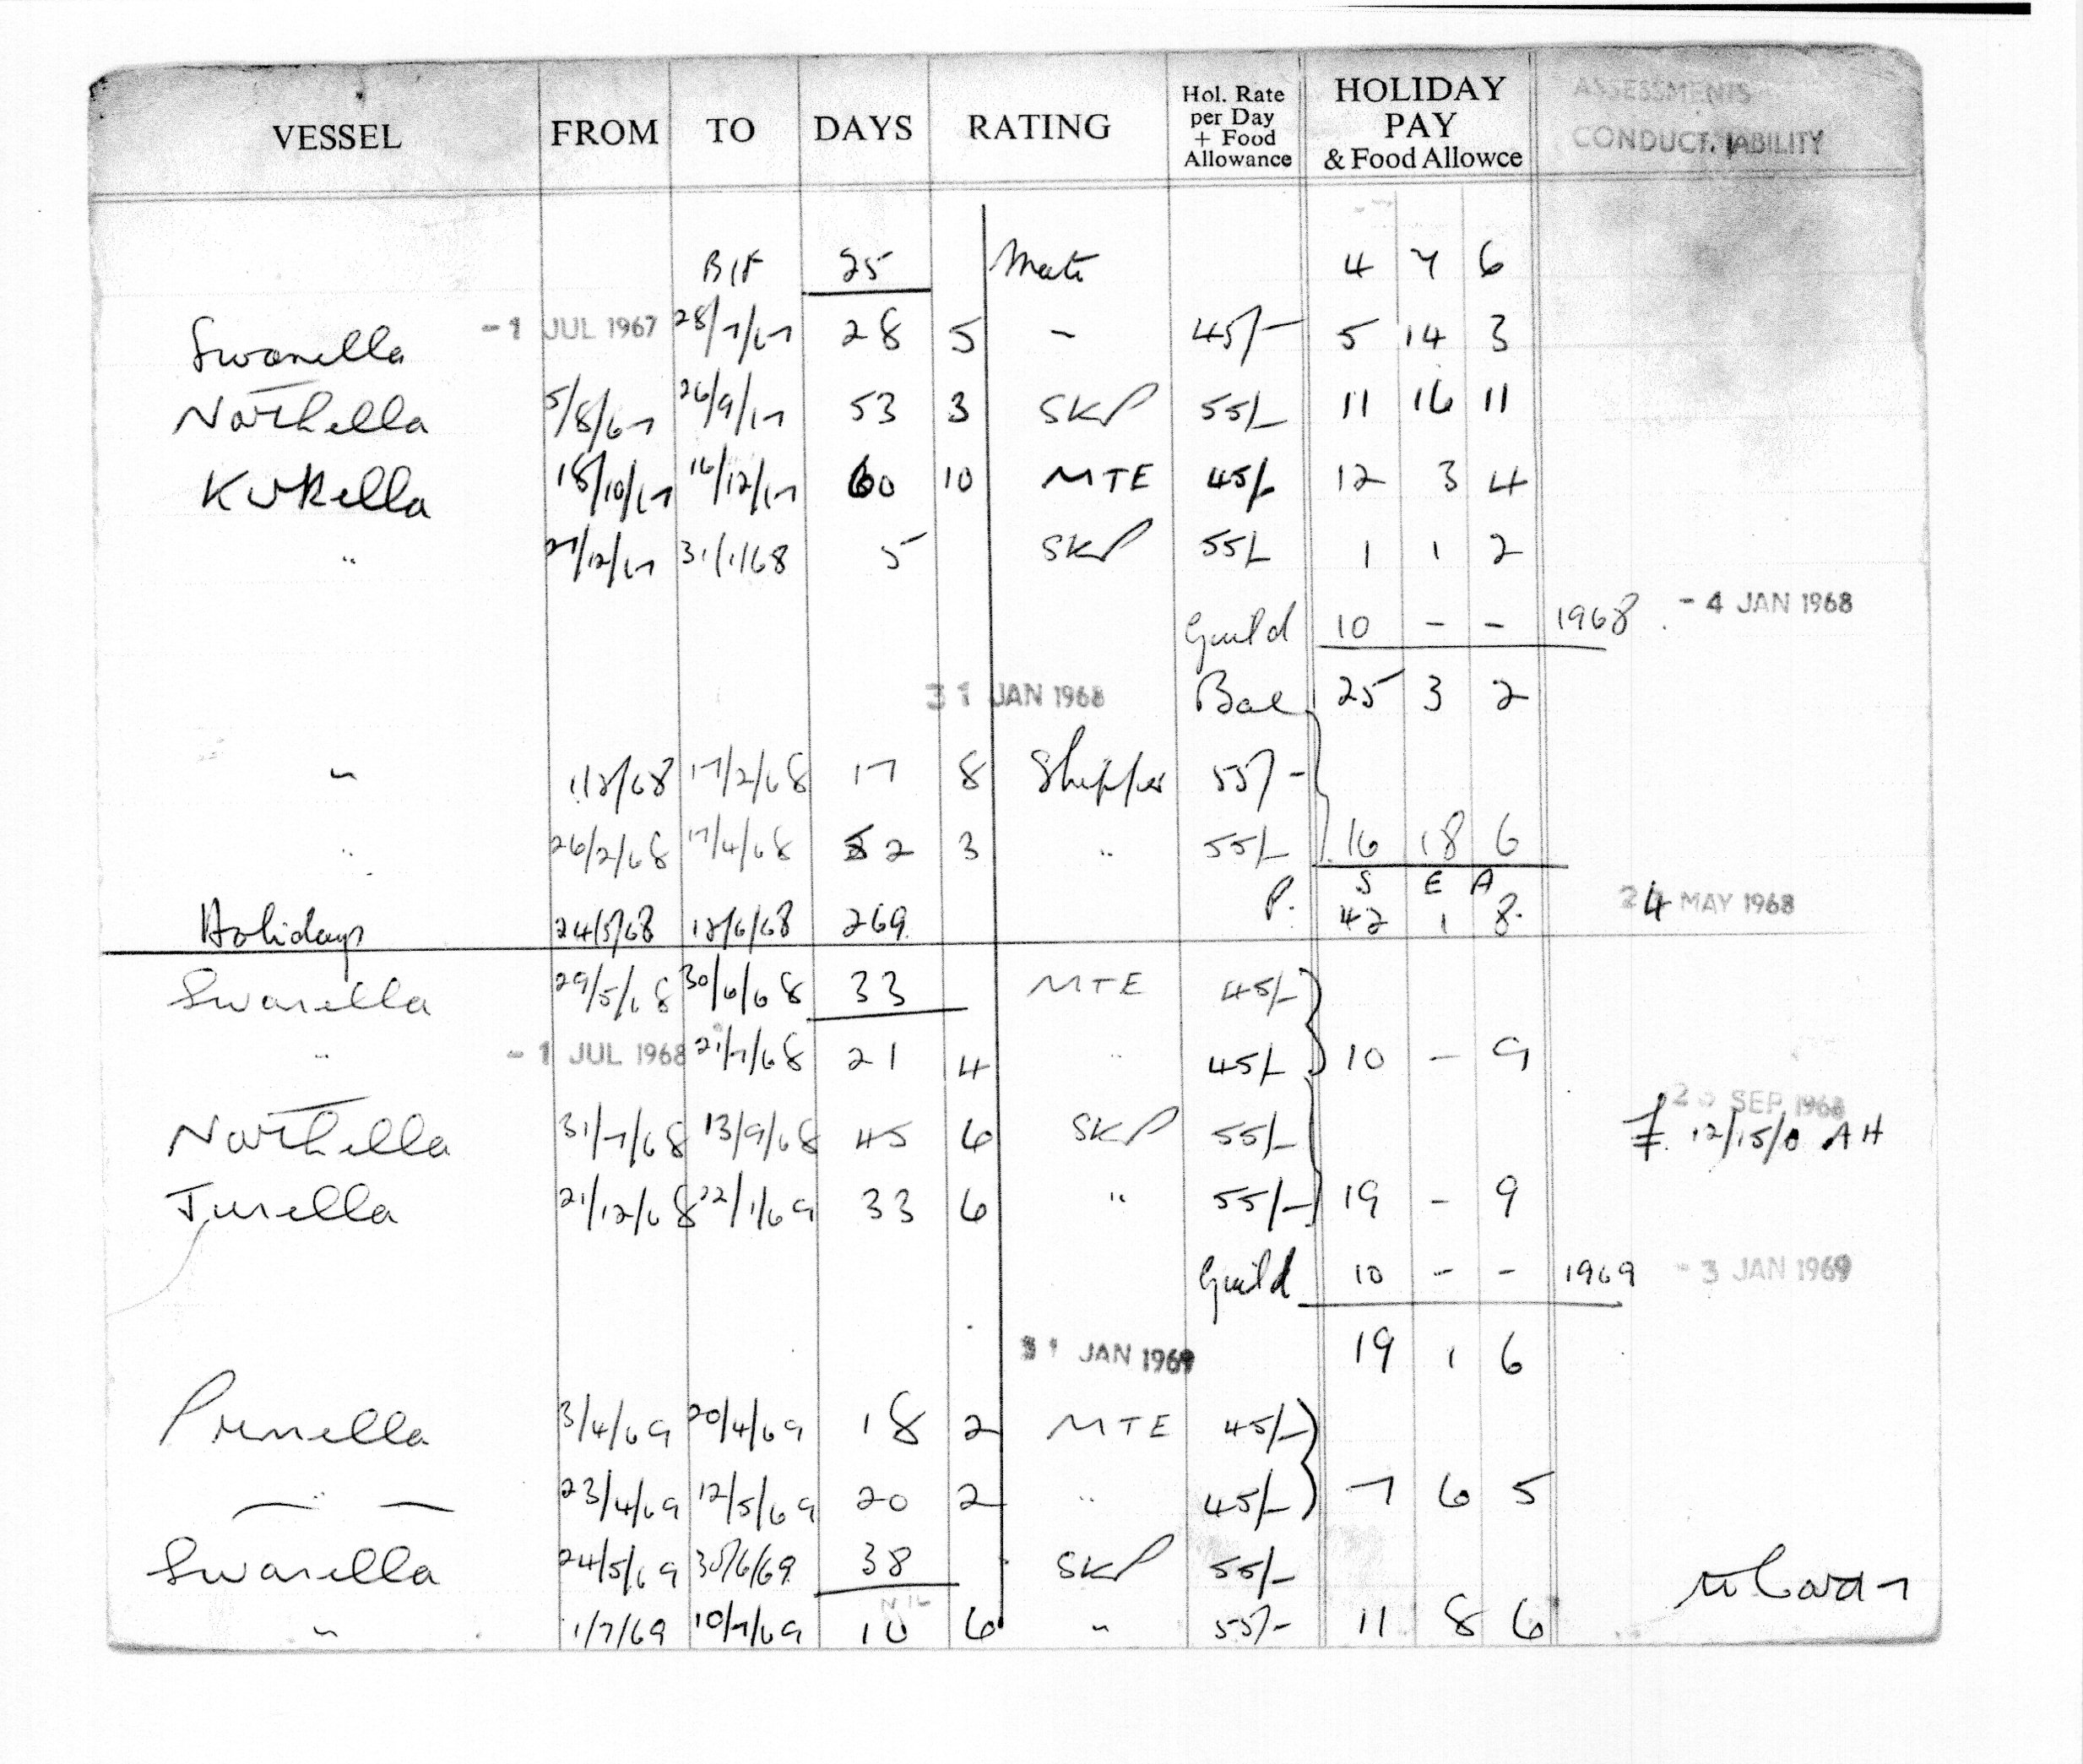 VESSEL FROM TO DAYS RATING Hol. Rate per Day + Food Allowance HOLIDAY PAY & Food Allowce ASSESSMENTS CONDUCT. ABILITY
B/F 25 Mate 4 7 6
Swanella - 1 JUL 1967 28/7/67 28 5 - 45/- 5 14 3
Northella 5/8/67 26/9/67 53 3 SKP 55/- 11 16 11
Kirkella 18/10/67 16/12/67 60 10 MTE 45/- 12 3 4
" 27/12/67 31/1/68 5 SKP 55/- 1 1 2
Guild 10 - - 1968 - 4 JAN 1968
31 JAN 1968 Bal 25 3 2
" 1/2/68 17/2/68 17 8 Skipper 55/-
" 26/2/68 17/4/68 52 3 " 55/- 16 18 6
S E A
Holidays 24/5/68 12/6/68 269 P. 42 1 8. 24 MAY 1968
Swanella 29/5/68 30/6/68 33 MTE 45/-
" - 1 JUL 1968 21/7/68 21 4 " 45/- 10 - 9
Northella 31/7/68 13/9/68 45 6 SKP 55/- SEP 1968
£ 12/15/0 AH
Junella 21/12/68 22/1/69 33 6 " 55/- 19 - 9
Guild 10 - - 1969 - 3 JAN 1969
31 JAN 1969 19 1 6
Prunella 3/4/69 20/4/69 18 2 MTE 45/-
" 23/4/69 12/5/69 20 2 " 45/- 7 6 5
Swanella 24/5/69 30/6/69 38 SKP 55/-
" 1/7/69 10/7/69 10 6 " 55/- 11 8 6